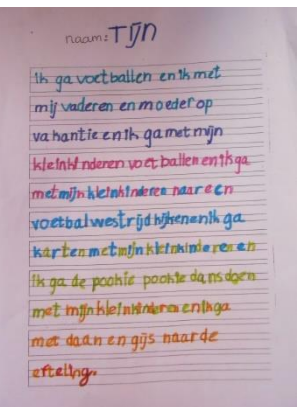 naam: Tijn
ik ga voetballen en ik met
mij vaderen en moeder op
vakantie en ik ga met mijn
kleinkinderen voetballen en ik ga
met mijn kleinkinderen naar een
voetbalwestrijd kijken en ik ga
karten met mijn kleinkinderen en
ik ga de pookie pookie dans doen
met mijn kleinkinderen en ik ga
met daan en gijs naar de
efteling.